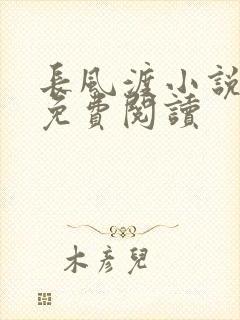 長風渡小說
免費閱讀
木彥兒